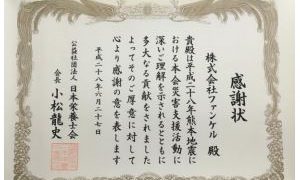 感謝状
株式会社ファンケル 殿
貴殿は平成二十八年熊本地震に
おける本会災害支援活動に
深いご理解を示されるとともに
多大なる貢献をされました
よってそのご厚意に対して
心より感謝の意を表します
平成二十八年六月二十七日
公益社団法人 日本栄養士会
会長 小松龍史